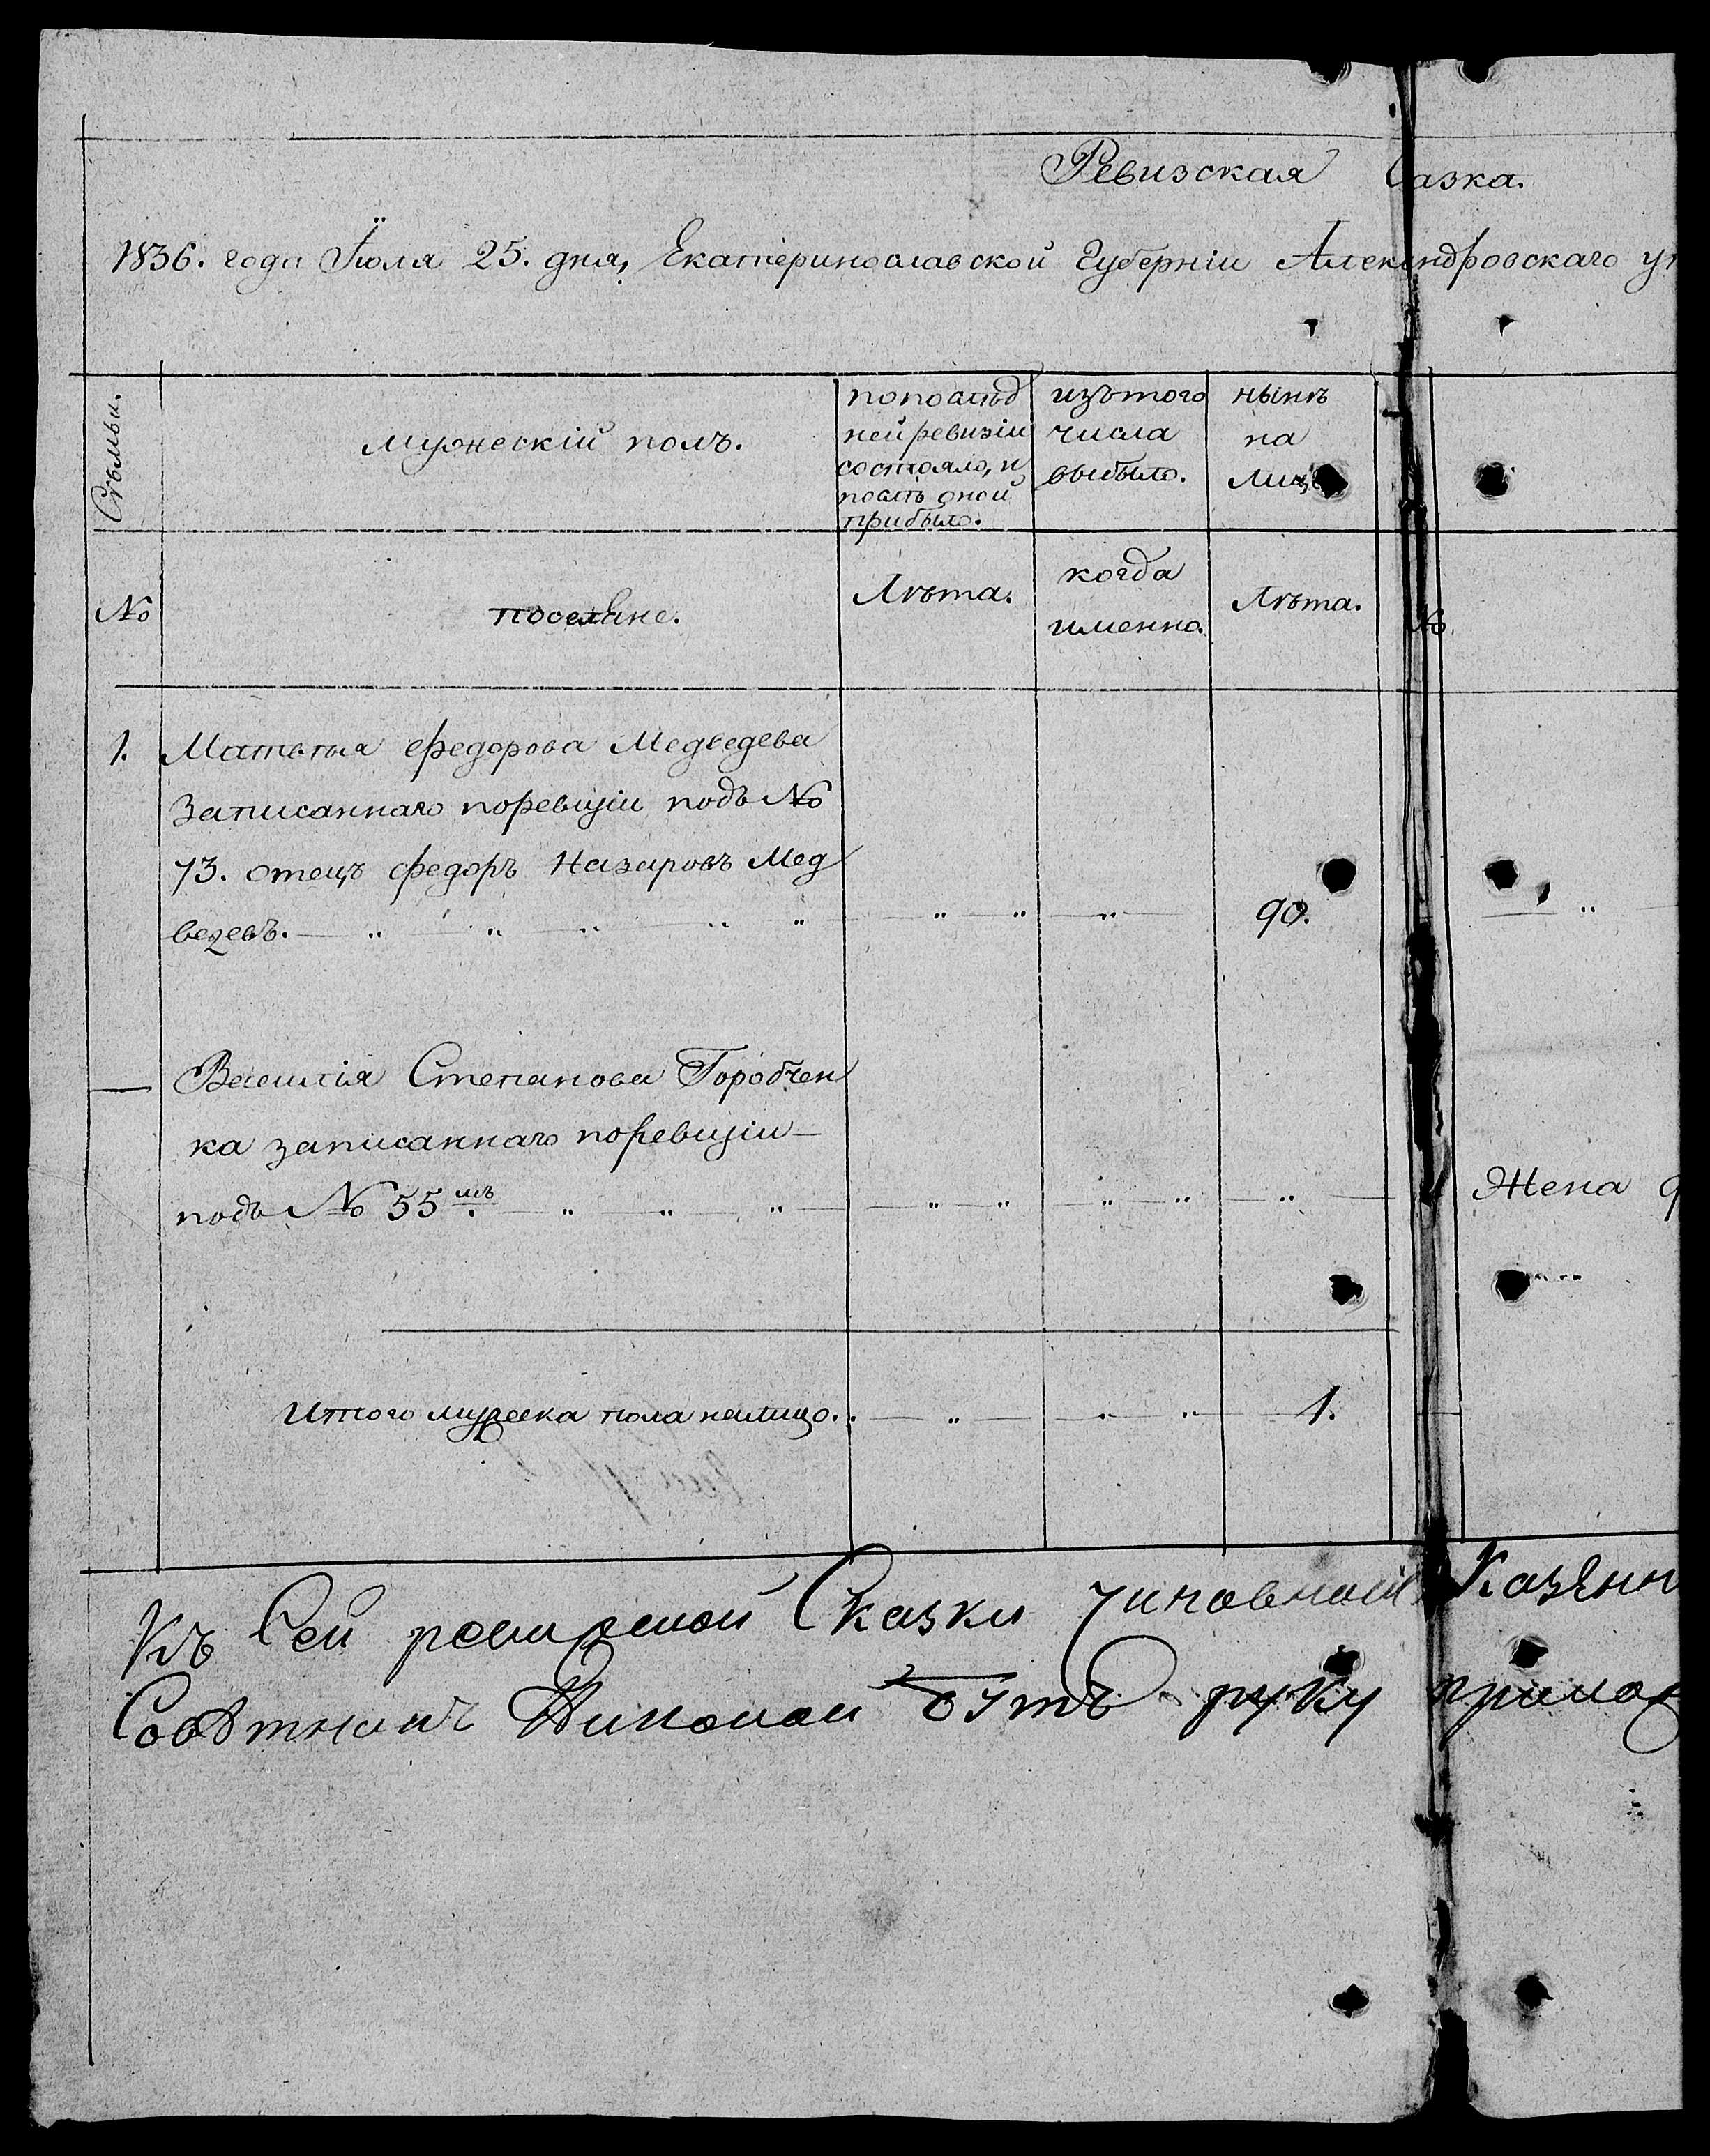 Ревизская Сказка.
1836. года Іюля 25. дня, Екатеринославской Губерніи Александровскаго у
Семьи.
мужескій полъ.
по послѣд
ней ревизіи
состояло, и
послѣ оной
прибыло.
изъ того
числа
выбыло.
нынѣ
на
лицо
№
поселяне.
Лѣта.
когда
именно.
Лѣта.
№
1. Матвѣя Федорова Медведева
Записаннаго поревизіи подъ №
73. отецъ Федоръ Назаровъ Мед
ведевъ. 90.
Василія Степанова Горобчен
ка записаннаго поревизіи
подъ № 55мъ
Жена
Итого мужеска пола налицо. 1.
Къ Сей ревизской Сказки Чиновной Казенн
Совѣтникъ Николай руку прилож